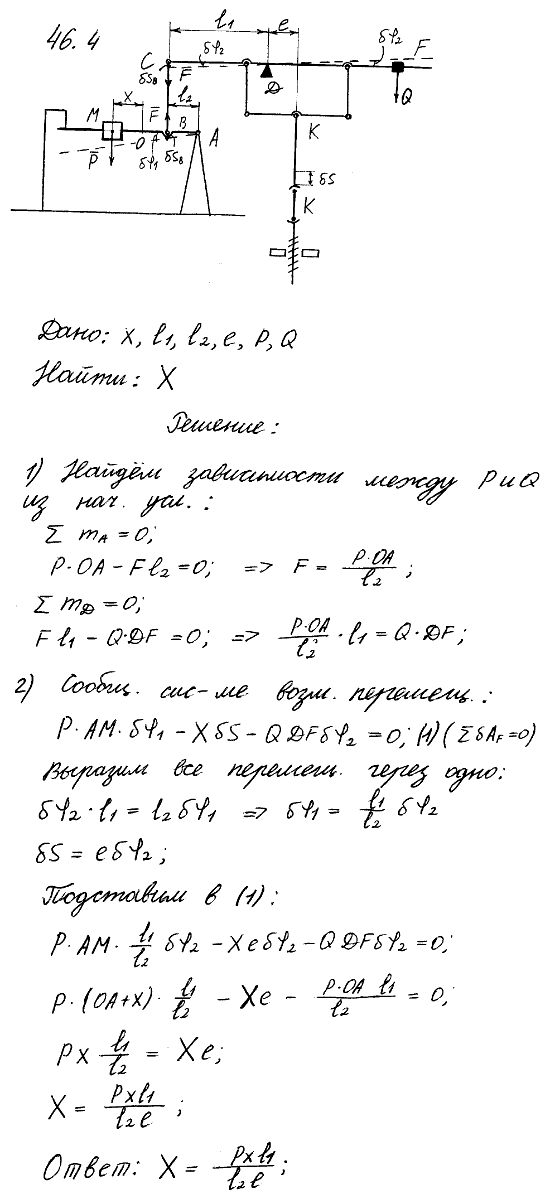 46.4
l₁
e
δφ₂
δφ₂
F
C
δS_B
F̅
D
Q
x
l₂
F̅
M
B
A
K
O
P̅
δφ₁
δS_B
δS
K
Дано: x, l₁, l₂, e, P, Q
Найти: X
Решение:
1) Найдём зависимости между P и Q
из нач. усл.:
Σ m_A = 0;
P·OA - Fl₂ = 0; => F = P·OA/l₂;
Σ m_D = 0;
Fl₁ - Q·DF = 0; => P·OA/l₂ · l₁ = Q·DF;
2) Сообщ. сис-ме возм. перемещ.:
P·AM·δφ₁ - XδS - QDFδφ₂ = 0; (1) (ΣδA_F = 0)
Выразим все перемещ. через одно:
δφ₂·l₁ = l₂δφ₁ => δφ₁ = l₁/l₂ δφ₂
δS = eδφ₂;
Подставим в (1):
P·AM· l₁/l₂ δφ₂ - Xeδφ₂ - QDFδφ₂ = 0;
P·(OA+x)· l₁/l₂ - Xe - P·OA l₁/l₂ = 0;
Px l₁/l₂ = Xe;
X = Pxl₁/l₂e;
Ответ: X = Pxl₁/l₂e;